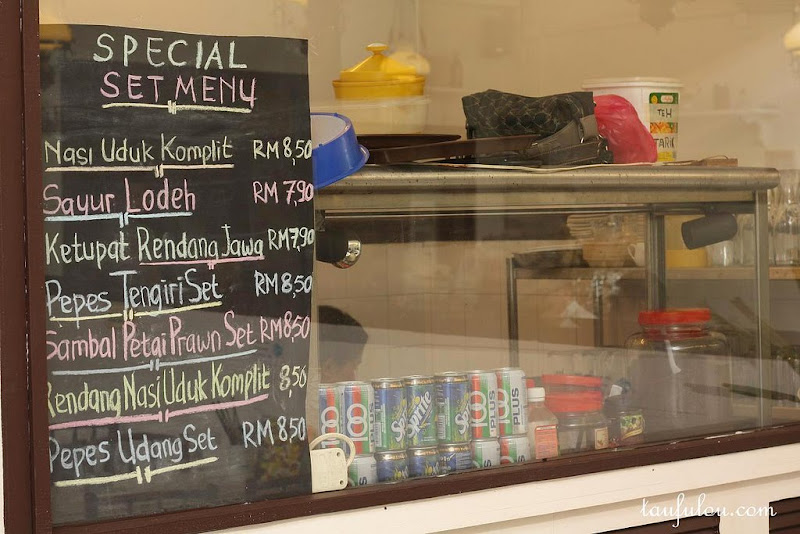 SPECIAL
SET MENU
Nasi Uduk Komplit RM 8,50
Sayur Lodeh RM 7,90
Ketupat Rendang Jawa RM 7,90
Pepes Tengiri Set RM 8,50
Sambal Petai Prawn Set RM 8,50
Rendang Nasi Uduk Komplit 8,50
Pepes Udang Set RM 8,50
TEH
TARIK
100 PLUS
Sprite
Sprite
100 PLUS
100 PLUS
taufulou.com